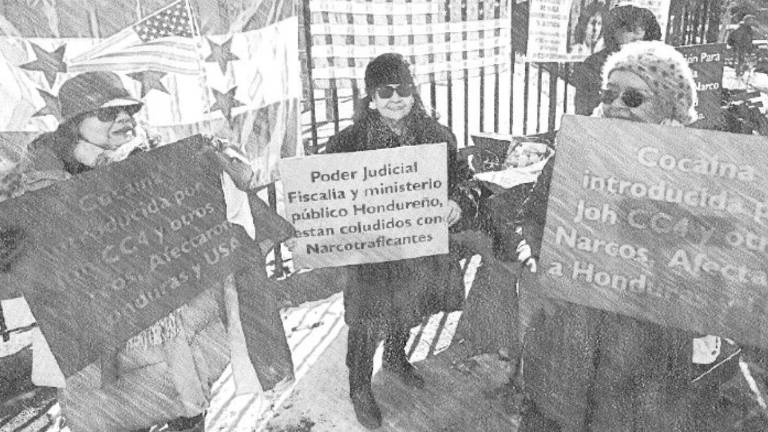 Cocaina
introducida por
CC4 y otros
Afectaron
Honduras y USA
Poder Judicial
Fiscalia y ministerio
público Hondureño,
estan coludidos con
Narcotraficantes
Cocaina
introducida p
Joh CC4 y otr
Narcos, Afecta
a Hondur
Para
Narco